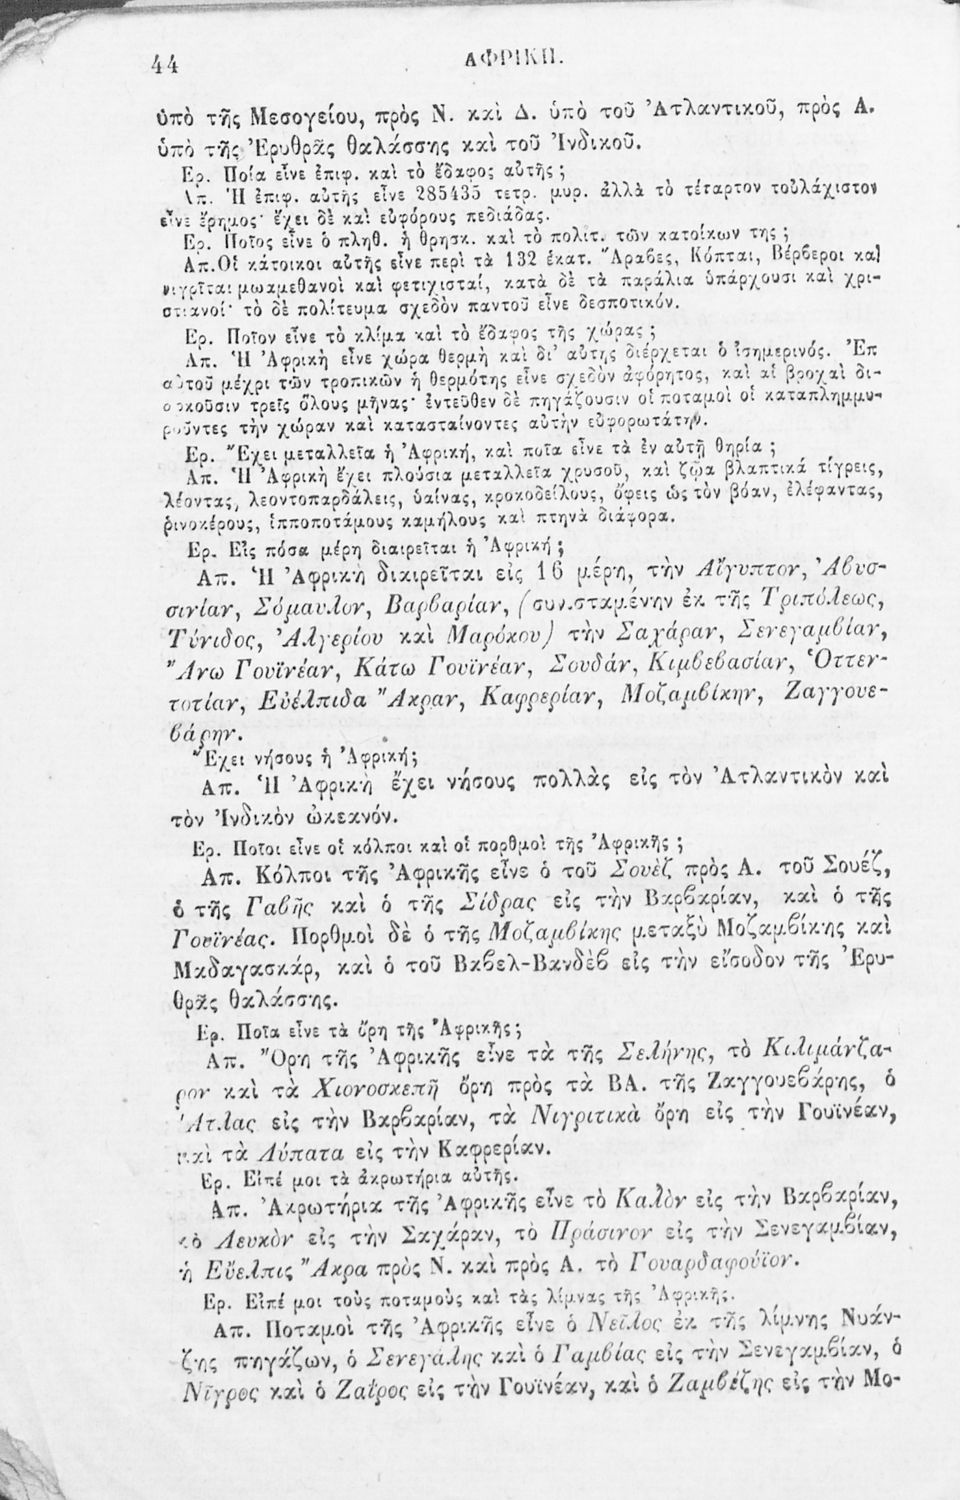 44
ΑΦΡΙΚΗ.
ὑπὸ τῆς Μεσογείου, πρὸς Ν. καὶ Δ. ὑπὸ τοῦ Ἀτλαντικοῦ, πρὸς Α.
ὑπὸ τῆς Ἐρυθρᾶς θαλάσσης καὶ τοῦ Ἰνδικοῦ.
Ερ. Ποία εἶνε ἐπιφ. καὶ τὸ ἔδαφος αὐτῆς ;
Απ. Ἡ ἐπιφ. αὐτῆς εἶνε 285435 τετρ. μυρ. ἀλλὰ τὸ τέταρτον τοὐλάχιστον
εἶνε ἔρημος· ἔχει δὲ καὶ εὐφόρους πεδιάδας.
Ερ. Ποῖος εἶνε ὁ πληθ. ἡ θρησκ. καὶ τὸ πολιτ. τῶν κατοίκων της ;
Απ.Οἱ κάτοικοι αὐτῆς εἶνε περὶ τὰ 132 ἑκατ. Ἄραβες, Κόπται, Βέρβεροι καὶ
νιγρῖται μωαμεθανοὶ καὶ φετιχισταί, κατὰ δὲ τὰ παράλια ὑπάρχουσι καὶ χρι-
στιανοί· τὸ δὲ πολίτευμα σχεδὸν παντοῦ εἶνε δεσποτικόν.
Ερ. Ποῖον εἶνε τὸ κλίμα καὶ τὸ ἔδαφος τῆς χώρας ;
Απ. Ἡ Ἀφρικὴ εἶνε χώρα θερμὴ καὶ δι' αὐτῆς διέρχεται ὁ ἰσημερινός. Ἐπ
αὐτοῦ μέχρι τῶν τροπικῶν ἡ θερμότης εἶνε σχεδὸν ἀφόρητος, καὶ αἱ βροχαὶ δι-
αρκοῦσιν τρεῖς ὅλους μῆνας· ἐντεῦθεν δὲ πηγάζουσιν οἱ ποταμοὶ οἱ καταπλημμυ-
ροῦντες τὴν χώραν καὶ κατασταίνοντες αὐτὴν εὐφορωτάτην.
Ερ. Ἔχει μεταλλεῖα ἡ Ἀφρική, καὶ ποῖα εἶνε τὰ ἐν αὐτῇ θηρία ;
Απ. Ἡ Ἀφρικὴ ἔχει πλούσια μεταλλεῖα χρυσοῦ, καὶ ζῷα βλαπτικά τίγρεις,
λέοντας, λεοντοπαρδάλεις, ὑαίνας, κροκοδείλους, ὄφεις ὡς τὸν βόαν, ἐλέφαντας,
ῥινοκέρους, ἱπποποτάμους καμήλους καὶ πτηνὰ διάφορα.
Ερ. Εἰς πόσα μέρη διαιρεῖται ἡ Ἀφρική ;
Απ. Ἡ Ἀφρικὴ διαιρεῖται εἰς 16 μέρη, τὴν Αἴγυπτον, Ἀβυσ-
σινίαν, Σόμαυλον, Βαρβαρίαν, (συνισταμένην ἐκ τῆς Τριπόλεως,
Τύνιδος, Ἀλγερίου καὶ Μαρόκου) τὴν Σαχάραν, Σενεγαμβίαν,
Ἄνω Γουϊνέαν, Κάτω Γουϊνέαν, Σουδάν, Κιμβεβασίαν, Ὁττεν-
τοτίαν, Εὐέλπιδα Ἄκραν, Καφρερίαν, Μοζαμβίκην, Ζαγγουε-
βάρην.
Ἔχει νήσους ἡ Ἀφρική;
Απ. Ἡ Ἀφρικὴ ἔχει νήσους πολλὰς εἰς τὸν Ἀτλαντικὸν καὶ
τὸν Ἰνδικὸν ὠκεανόν.
Ερ. Ποῖοι εἶνε οἱ κόλποι καὶ οἱ πορθμοὶ τῆς Ἀφρικῆς ;
Απ. Κόλποι τῆς Ἀφρικῆς εἶνε ὁ τοῦ Σουὲζ πρὸς Α. τοῦ Σουέζ,
ὁ τῆς Γαβῆς καὶ ὁ τῆς Σίδρας εἰς τὴν Βαρβαρίαν, καὶ ὁ τῆς
Γουϊνέας. Πορθμοὶ δὲ ὁ τῆς Μοζαμβίκης μεταξὺ Μοζαμβίκης καὶ
Μαδαγασκάρ, καὶ ὁ τοῦ Βαβελ-Βανδὲβ εἰς τὴν εἴσοδον τῆς Ἐρυ-
θρᾶς θαλάσσης.
Ερ. Ποῖα εἶνε τὰ ὄρη τῆς Ἀφρικῆς ;
Απ. Ὄρη τῆς Ἀφρικῆς εἶνε τὰ τῆς Σελήνης, τὸ Κιλιμάνζα-
ρον καὶ τὰ Χιονοσκεπῆ ὄρη πρὸς τὰ ΒΑ. τῆς Ζαγγουεβάρης, ὁ
Ἄτλας εἰς τὴν Βαρβαρίαν, τὰ Νιγριτικὰ ὄρη εἰς τὴν Γουϊνέαν,
καὶ τὰ Λύπατα εἰς τὴν Καφρερίαν.
Ερ. Εἰπέ μοι τὰ ἀκρωτήρια αὐτῆς.
Απ. Ἀκρωτήρια τῆς Ἀφρικῆς εἶνε τὸ Καλὸν εἰς τὴν Βαρβαρίαν,
τὸ Λευκὸν εἰς τὴν Σαχάραν, τὸ Πράσινον εἰς τὴν Σενεγαμβίαν,
ἡ Εὔελπις Ἄκρα πρὸς Ν. καὶ πρὸς Α. τὸ Γουαρδαφούϊον.
Ερ. Εἰπέ μοι τοὺς ποταμοὺς καὶ τὰς λίμνας τῆς Ἀφρικῆς.
Απ. Ποταμοὶ τῆς Ἀφρικῆς εἶνε ὁ Νεῖλος ἐκ τῆς λίμνης Νυάν-
ζης πηγάζων, ὁ Σενεγάλης καὶ ὁ Γαμβίας εἰς τὴν Σενεγαμβίαν, ὁ
Νῖγρος καὶ ὁ Ζαΐρος εἰς τὴν Γουϊνέαν, καὶ ὁ Ζαμβέζης εἰς τὴν Μο-